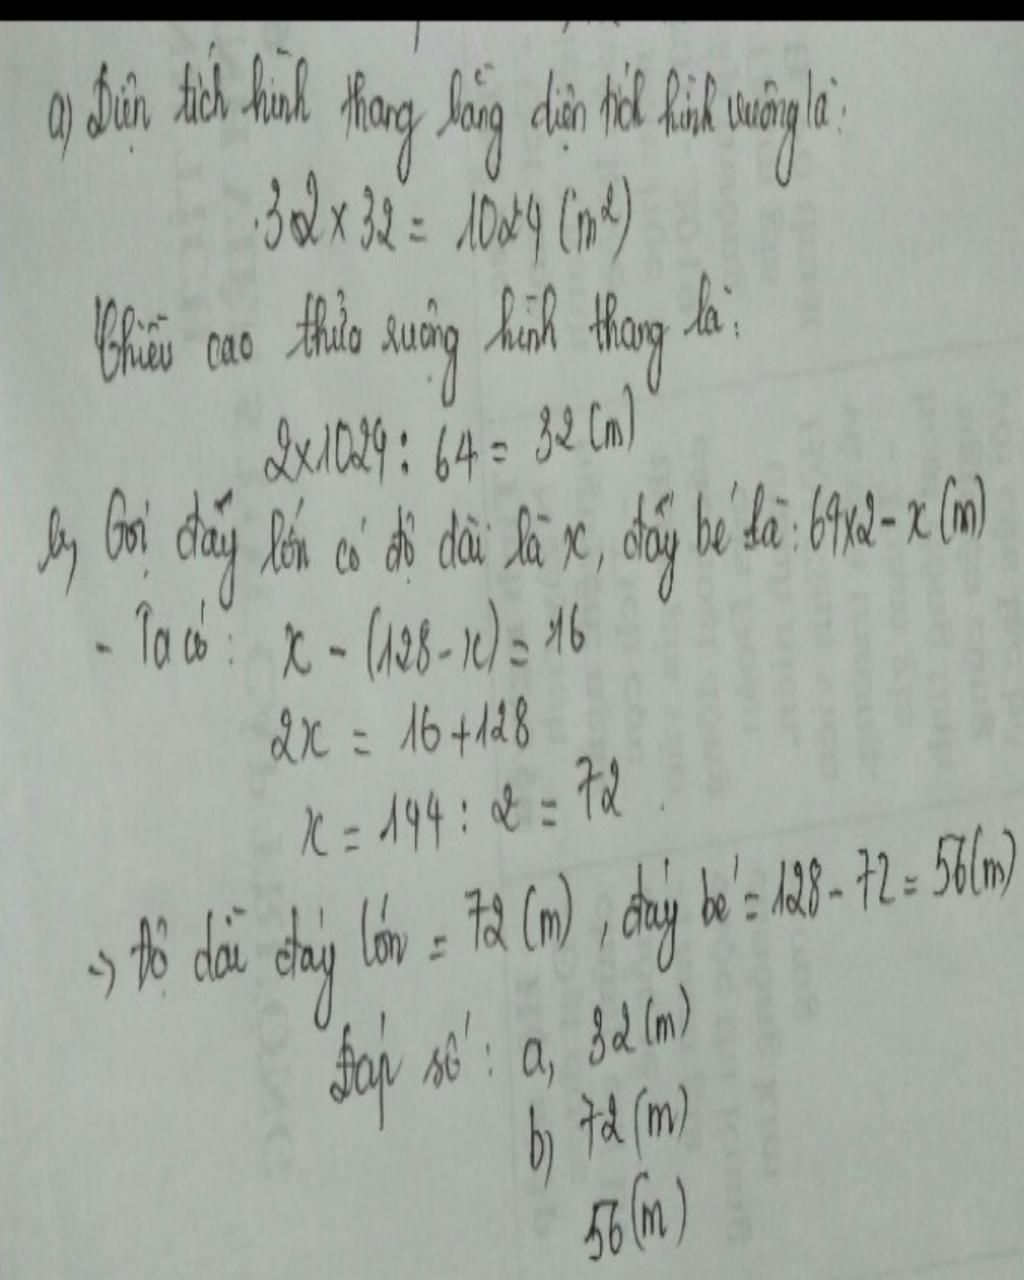 a) Diện tích hình thang bằng diện tích hình vuông là:
32 x 32 = 1024 (m²)
Chiều cao thửa ruộng hình thang là:
2x1024 : 64 = 32 (m)
b, Gọi đáy lớn có độ dài là x, đáy bé là: 64x2 - x (m)
- Ta có: x - (128 - x) = 16
2x = 16 + 128
x = 144 : 2 = 72
-> Độ dài đáy lớn = 72 (m), đáy bé = 128 - 72 = 56 (m)
Đáp số: a, 32 (m)
b) 72 (m)
56 (m)